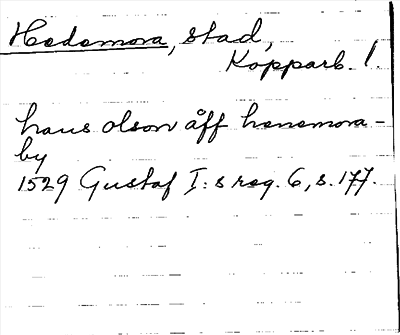 Hedemora, stad,
Kopparb. l.
hans olson åff henemora-
by
1529 Gustaf I:s reg. 6, s. 177.